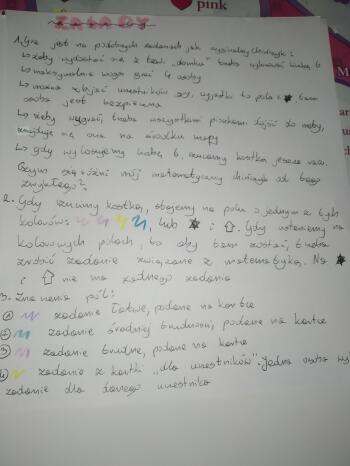 pink
ZASADY
1. Gra jest na podobnych zasadach jak oryginalny chińczyk:
↳ żeby wydostać się z tzw. „domku” trzeba wylosować liczbę 6
↳ maksymalnie mogą grać 4 osoby
↳ można zbijać uczestników gry, wyjątki to pola z ★, tam
osoba jest bezpieczna
↳ żeby wygrać, trzeba wszystkimi pionkami dojść do mety,
znajduje się ona na środku mapy
↳ gdy wylosujemy liczbę 6, rzucamy kostką jeszcze raz.
Czym się różni mój matematyczny chińczyk od tego
zwykłego?
2. Gdy rzucimy kostką, stajemy na polu o jednym z tych
kolorów: lub ★ i ⇧. Gdy ustaniemy na
kolorowych polach, to aby tam zostać, trzeba
zrobić zadanie związane z matematyką. Na ★
i ⇧ nie ma żadnego zadania
3. Znaczenia pól:
① zadanie łatwe, podane na kartce
② zadanie średniej trudności, podane na kartce
③ zadanie trudne, podane na kartce
④ zadanie z kartki „dla uczestników”. Jedna osoba
zadanie dla danego uczestnika